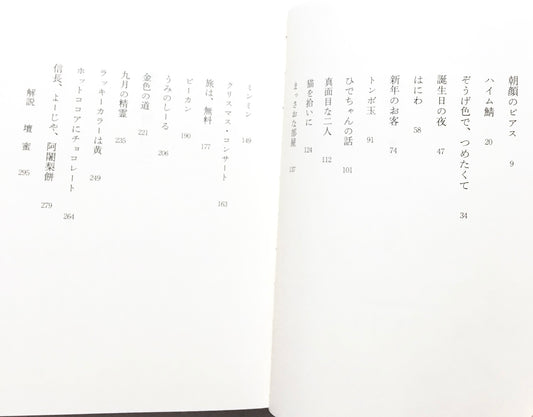 朝顔のピアス 9
ハイム鯖 20
ぞうげ色で、つめたくて 34
誕生日の夜 47
はにわ 58
新年のお客 74
トンボ玉 91
ひでちゃんの話 101
真面目な二人 112
猫を拾いに 124
まっさおな部屋 137
ミンミン 149
クリスマス・コンサート 163
旅は、無料 177
ピーカン 190
うみのしーる 206
金色の道 221
九月の精霊 235
ラッキーカラーは黄 249
ホットココアにチョコレート 264
信長、よーじや、阿闍梨餅 279
解説 壇蜜 295